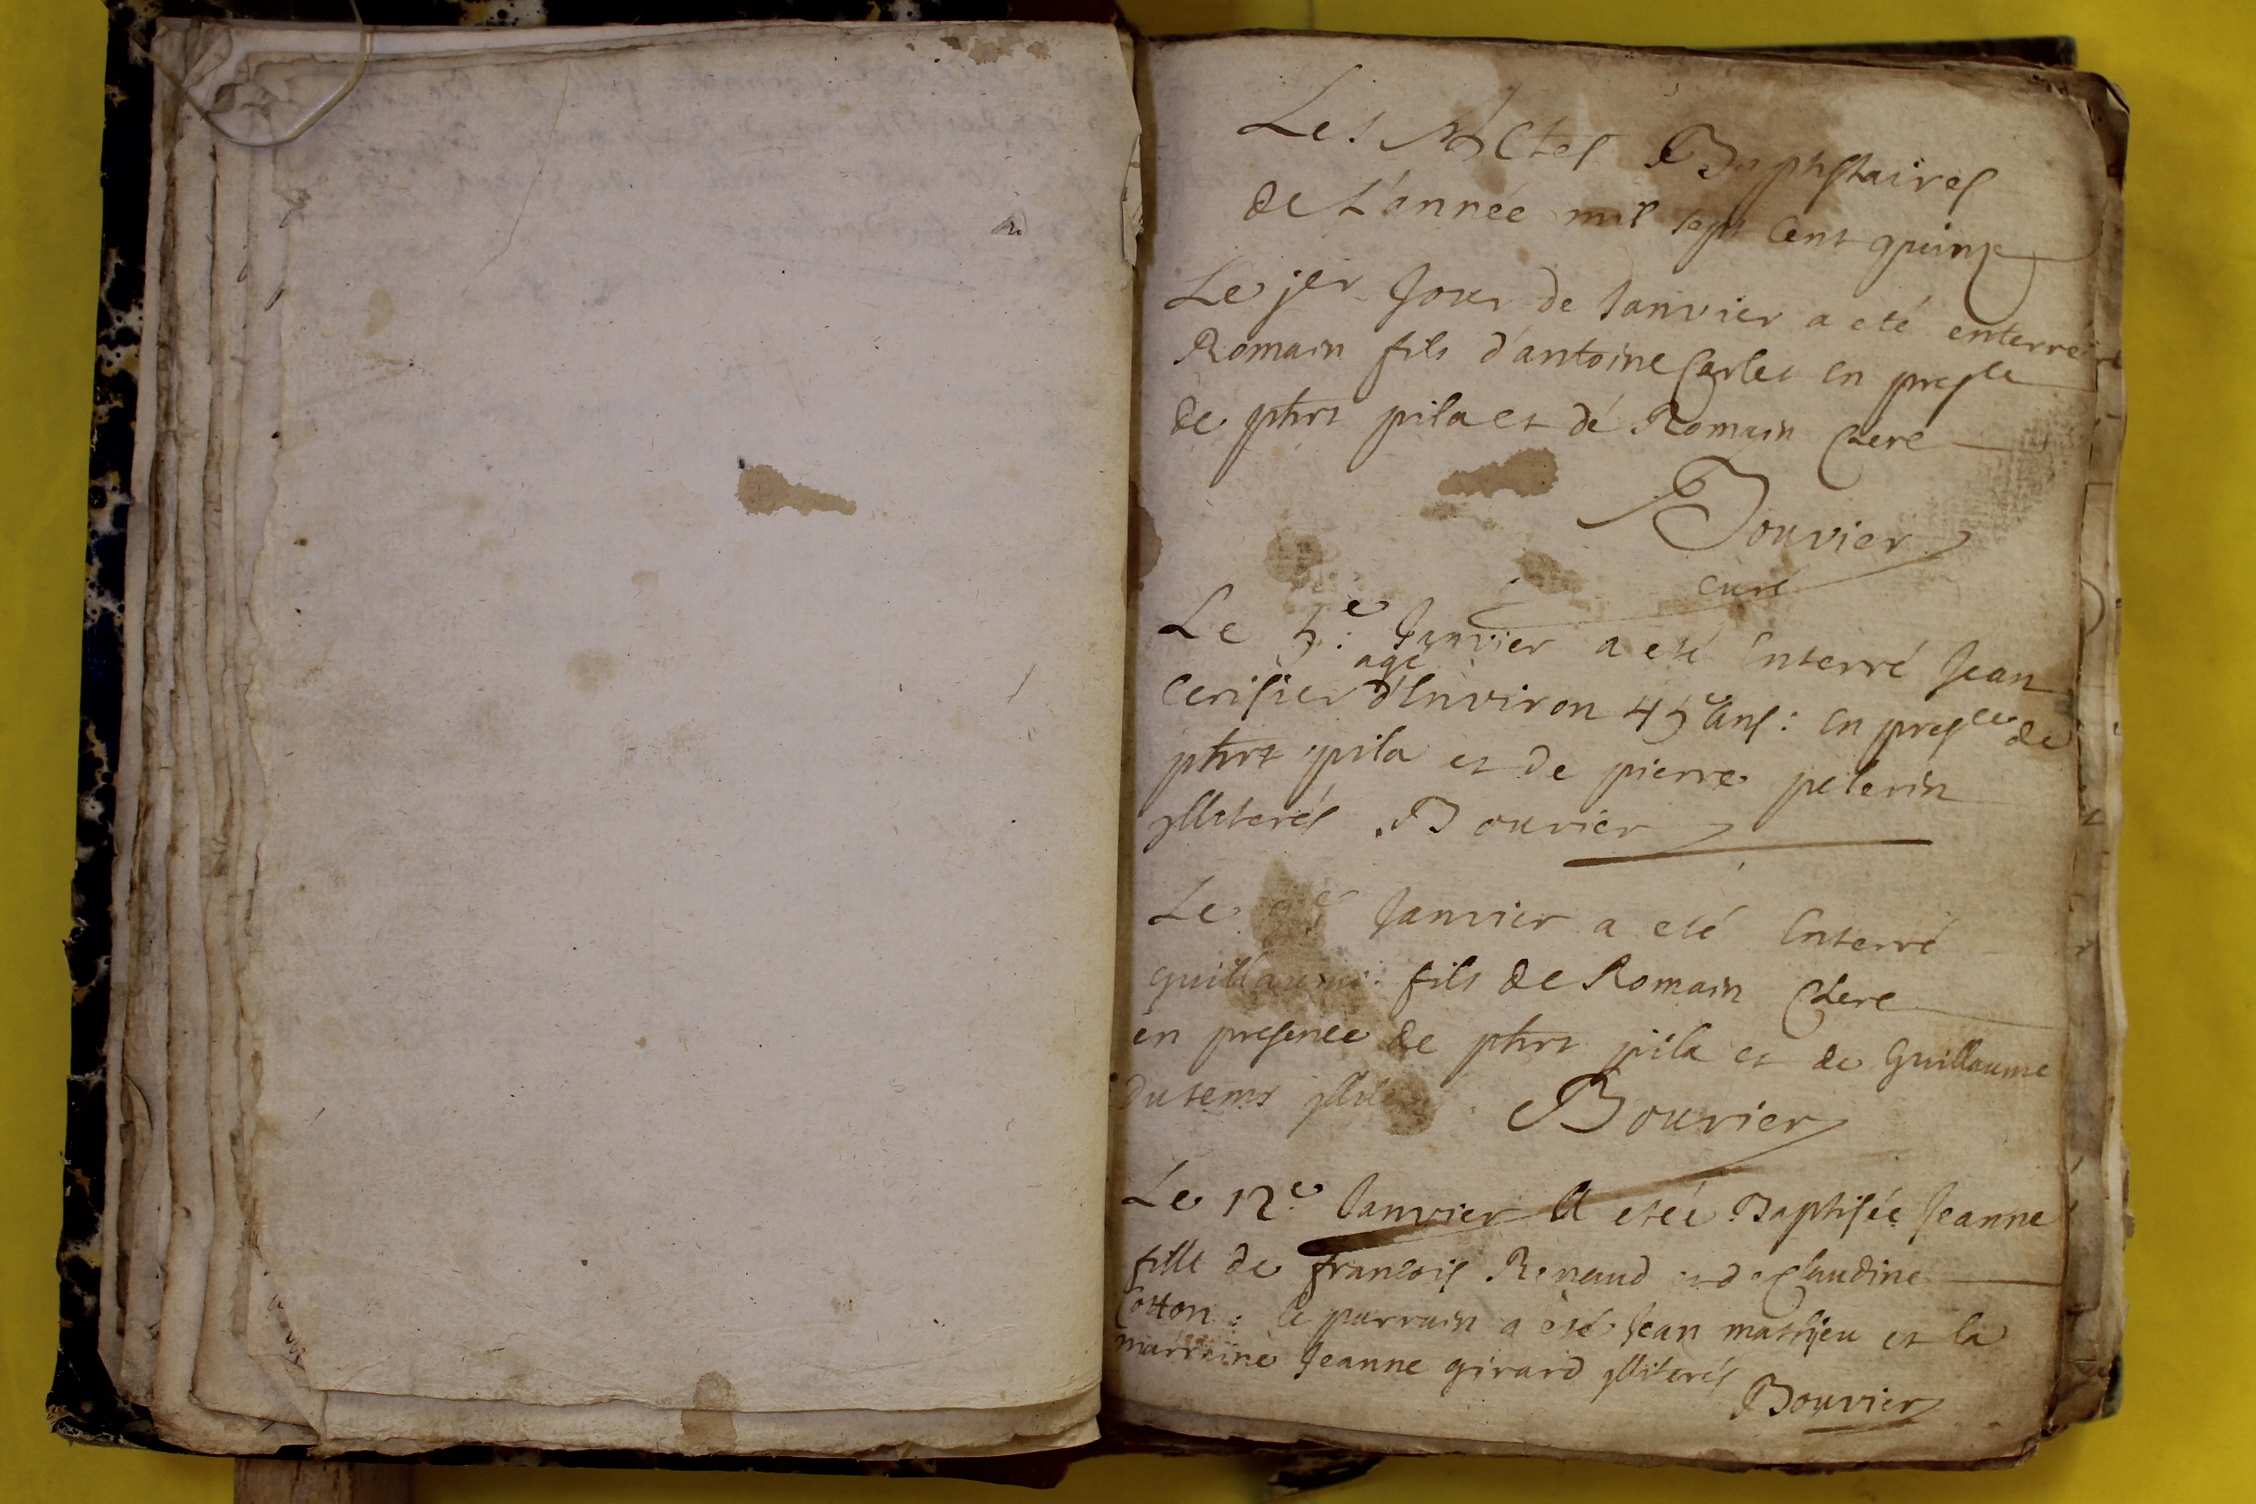 Les Actes Baptistaires
de L'année mil sept Cent quinze
Le jer Jour de Janvier a eté enterré
Romain fils d'antoine Carles en presce
de phrt pila et de Romain Chere
Bouvier
curé
Le 5e Janvier a eté Enterré Jean
agé
Cerisier d'Environ 45 ans : En presce de
phrt pila et de pierre pelerin
ylliterés Bouvier
Le 9e Janvier a eté Enterré
guillaume fils de Romain Chere
en presence de phrt pila et de Guillaume
Dutems
Bouvier
Le 12e Janvier A etée Baptisée Jeanne
fille de francois Renaud et de Claudine
Cotton : le parrain a eté Jean mathieu et la
marraine Jeanne girard ylliterés
Bouvier